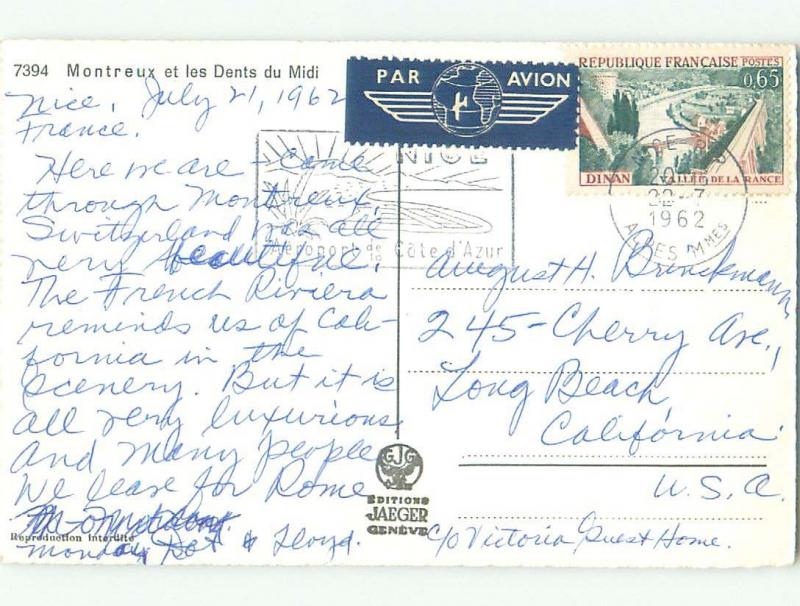 7394 Montreux et les Dents du Midi
PAR AVION
RÉPUBLIQUE FRANÇAISE POSTES
0,65
DINAN VALLÉE DE LA RANCE
NICE
Aéroport de la Côte d'Azur
22-7
1962
ALPES MMES
Nice, July 21, 1962
France.
Here we are - Came
through Montreux,
Switzerland was all
very beautiful.
The French Riviera
reminds us of Cali-
fornia in the
scenery. But it is
all very luxurious
and many people
We leave for Rome
Monday Dot & Lloyd.
August H. Brinckmann
245-Cherry Ave.,
Long Beach
California
U.S.A.
c/o Victoria Guest Home.
GJG
EDITIONS
JAEGER
GENÈVE
Reproduction Interdite